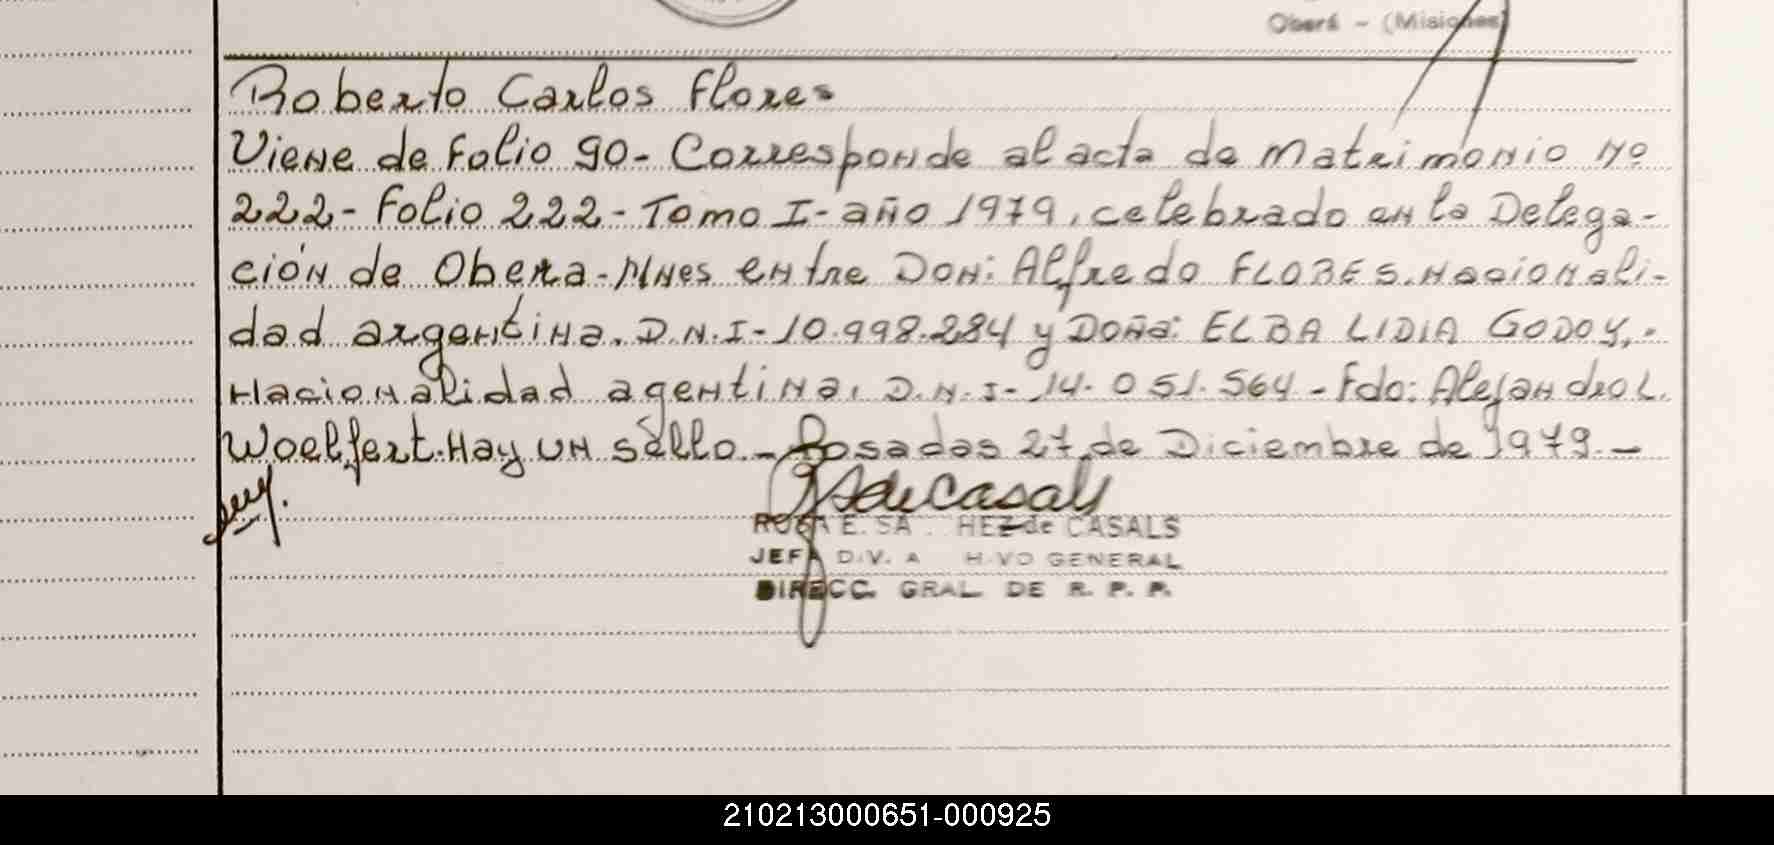 Oberá - (Misiones)
Roberto Carlos Flores
Viene de Folio 90- Corresponde al acta de Matrimonio Nº
222- Folio 222- Tomo I- año 1979, celebrado en la Delega-
ción de Obera- Mnes entre Don: Alfredo FLORES. Nacionali-
dad argentina. D.N.I- 10.998.284 y Doña: ELBA LIDIA GODOY,-
Nacionalidad agentina, D.N.I- 14.051.564 - Fdo: Alejandro L.
Woelfert. Hay un sello - Posadas 27 de Diciembre de 1979.-
de Casals
E. SA HEZ de CASALS
JEFA DIV. A H VO GENERAL
DIRECC. GRAL DE R. P. P.
210213000651-000925